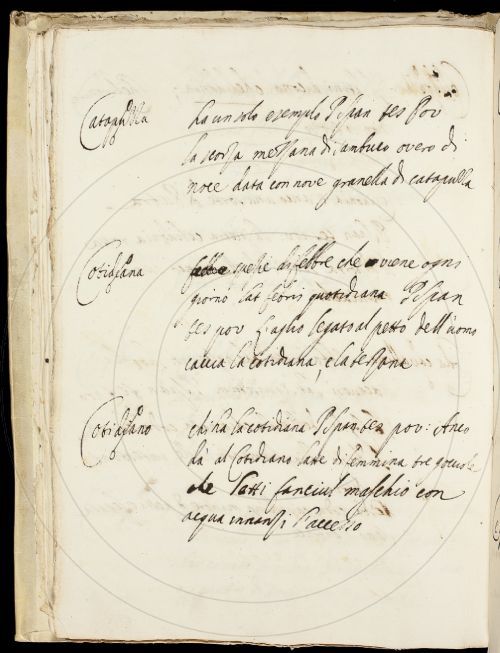 Catapuzza
ha un solo esemplo P. Span tes pov
la scorza mezzana di sambuco overo di
noce data con nove granella di catapuzza
Cotidiana
spetie di febre che viene ogni
giorno Lat febris quotidiana P. Span
tes pov L'aglio legato al petto dell'uomo
caccia la cotidiana, e la terzana
Cotidiano
chi ha la cotidiana P. Span tes pov: Anco
da al Cotidiano latte di femmina tre gocciole
che latti fanciul maschio con
acqua innanzi l'accesso